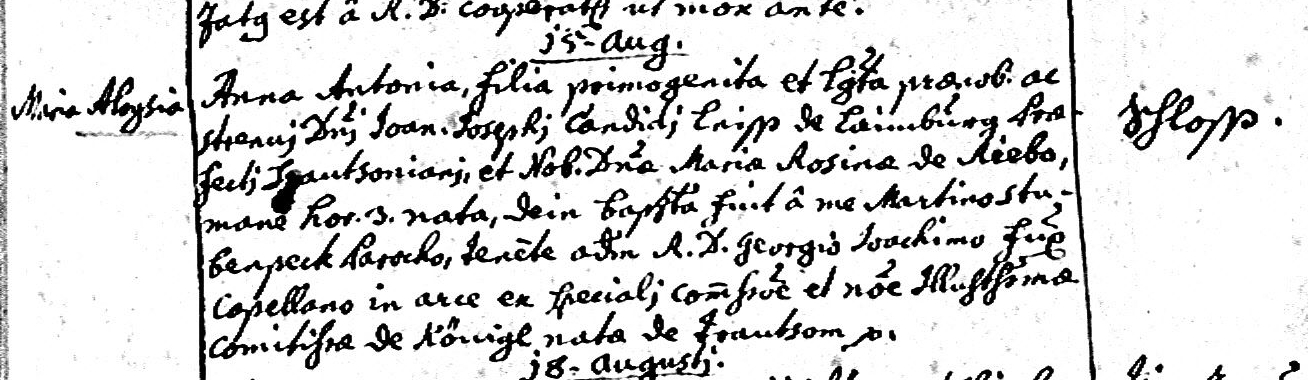 est â R. D. cooperat ut mox ante.
15 Aug.
Maria Aloysia
Anna Antonia, filia primogenita et lgta prænob. ac
strenuj Dnj Joan. Josephj Candidj Leiss de Laimburg Præ-
fectj Trautsonianj, et Nob. Dnæ Mariæ Rosinæ de Riebo,
Schloss.
mane hor. 3. nata, dein bapta fuit â me Martino Stu-
benpeck Parocho, tenēte adm R. D. Georgio Joachimo Fux
Capellano in arce ex specialj et nōe Illustrmæ
Comitissæ de Königl nata de Trautsom p.
18. Augustj.